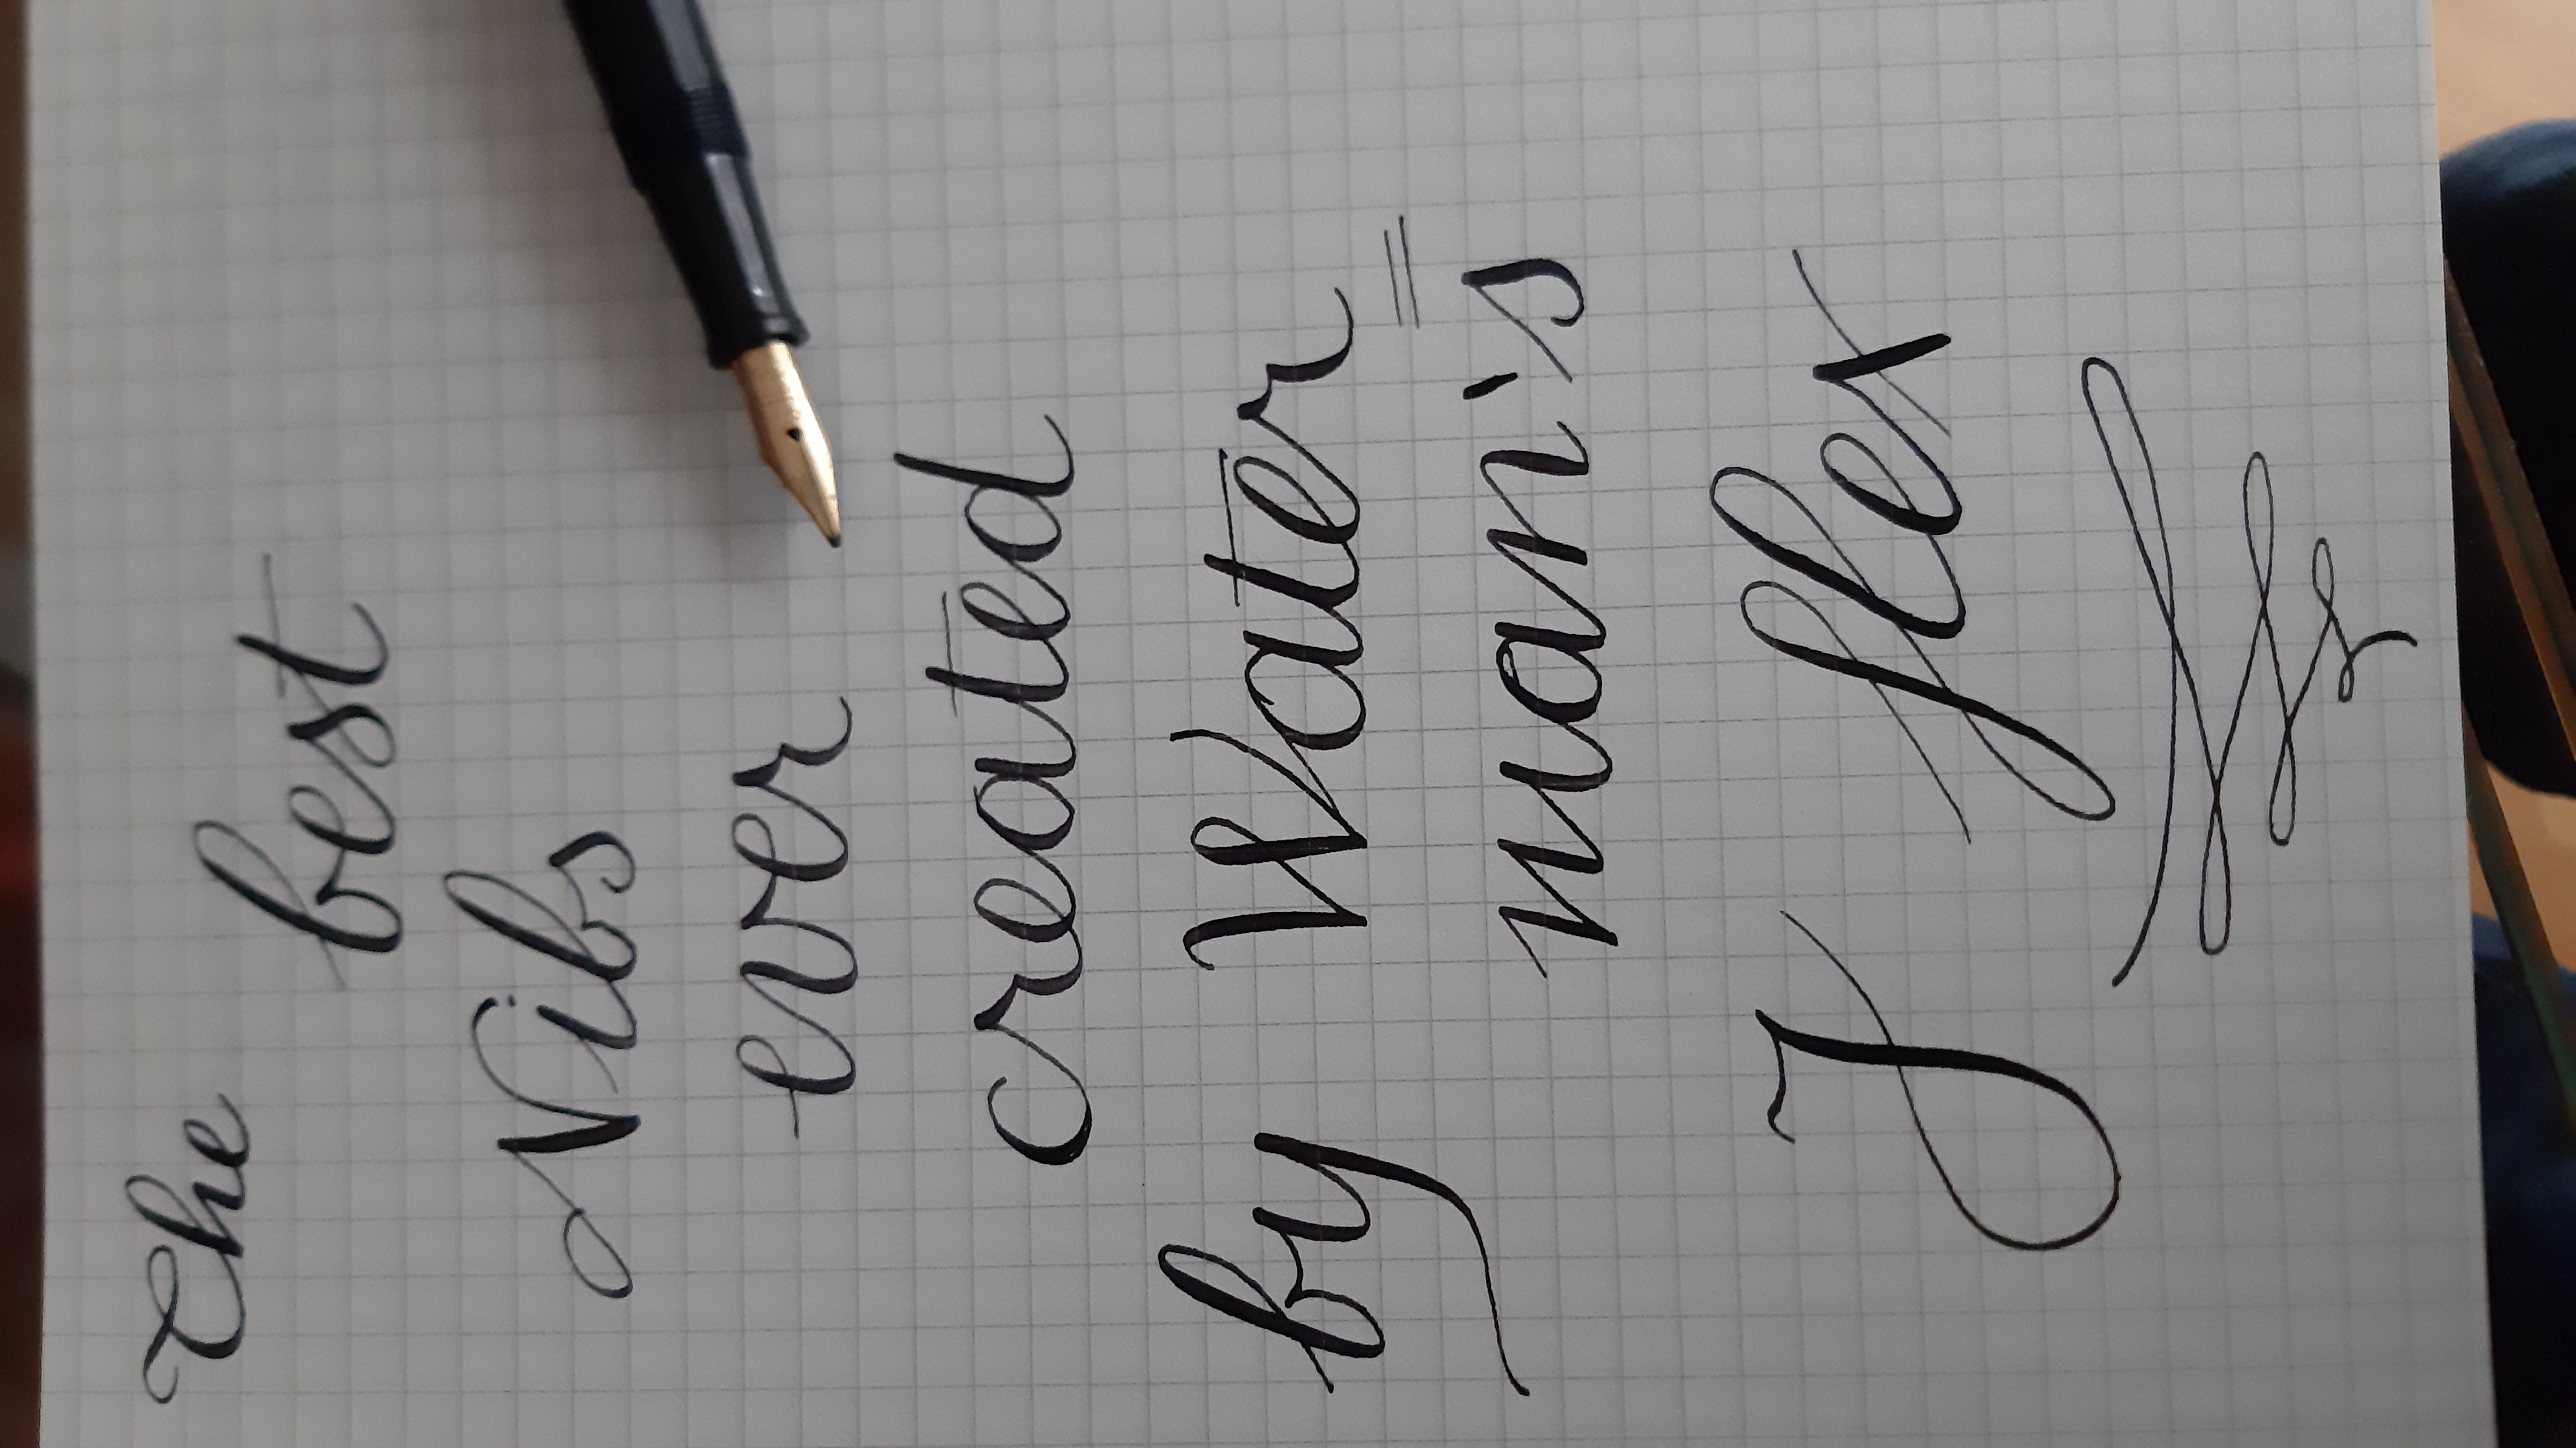 The best
Nibs
ever
created
by Water=
man's
flex